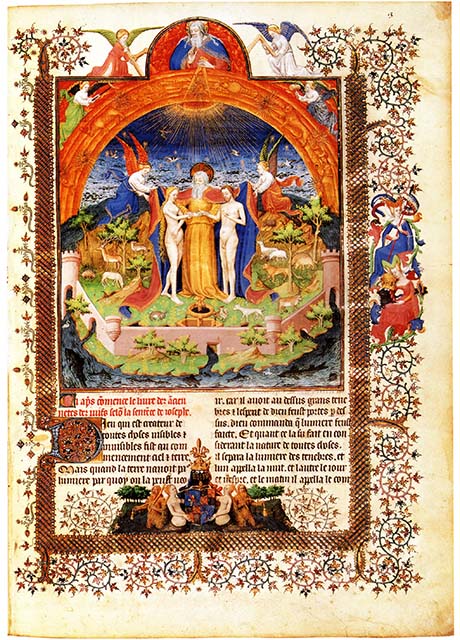 Cy aps cõmence le livre des ancien
netes des iuifs selõ la sentence de iosephe.
Dieu qui est createur de
toutes choses visibles &
invisibles fist au com
mencement ciel & terre
Mais quand la terre navoit pas
lumiere par quoy on la
ir. car il avoit au dessus grans tene
bres & lesprit de dieu portes
sus, dieu commanda que lumiere feust
faicte, Et quant ce la fut en con
siderant la nature de toutes choses,
il separa la lumiere des tenebres, et
lun appella la nuit. et lautre le iour
et le matin il appella le com